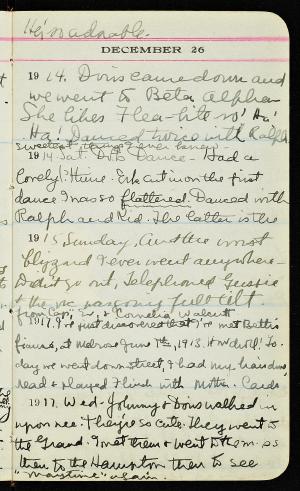 He's so adorable.
DECEMBER 26
1914. Doris came down and
we went to Beta Alpha
She likes Flea-bite so! Ha!
Ha! Danced twice with Ralph
sweetest thing I ever knew-
1914. Sat. Dot's Dance- Had a
lovely! time. Erk cut in on the first
dance I was so flattered. Danced with
Ralph and Kid. The latter is the
1915 Sunday, And the worst
blizzard I ever went anywhere-
Didn't go out, Telephoned Gussie
& the vic was going full tilt
from Cap, & Cornelia Walcutt
1917. I've just discovered that I've met Battis
at Melrose June 7th, 1913. To-
day we went down street, & I had my
read & played with Mother. Cards
1917. Wed- Johnny & Doris walked in
upon me. They're so cute. They went to
the Grand. I met them & went to them as
then to the Hampton then to see
again.